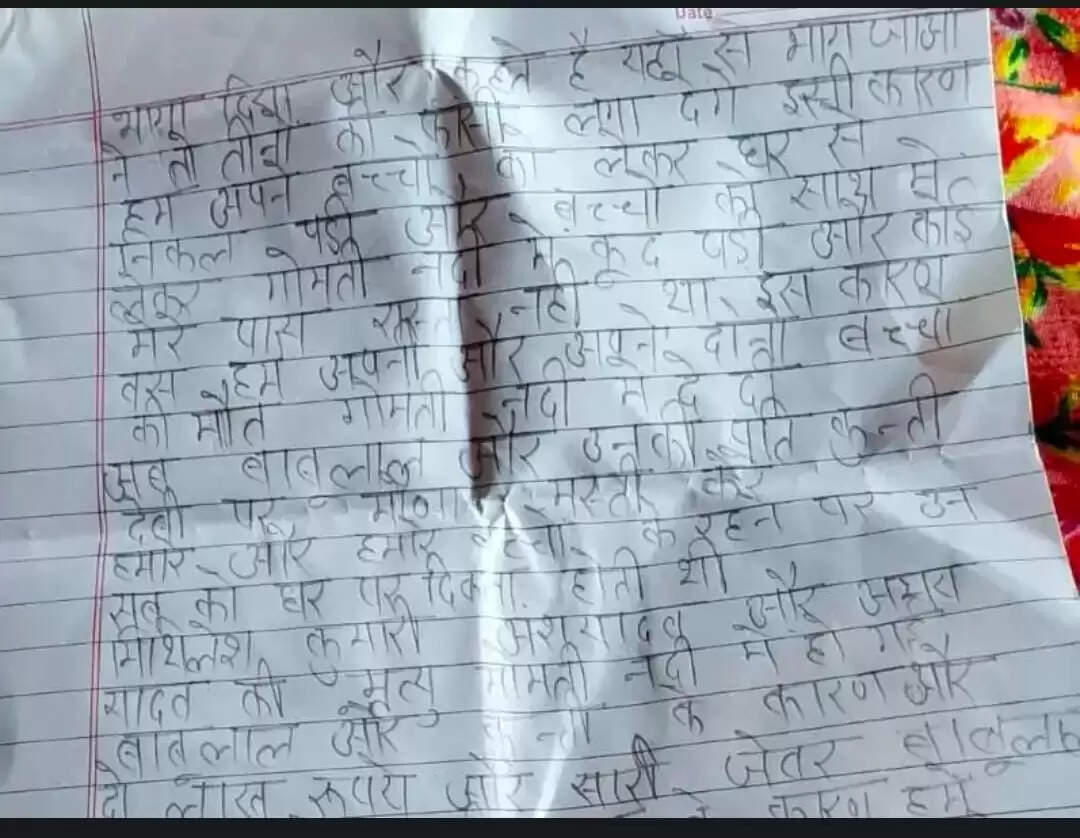 Date
भागा दिया और कहते है यहाँ से भाग जाओ
ने तो तीनो को फाँसी लगा देगे इसी कारण
हम अपने बच्चो को लेकर घर से
निकल पड़ी और बच्चो को साथ
लेकर गोमती नदी मे कूद पडी और कोई
मेरे पास रास्ता नही था इस कारण
बस हम अपनी और अपने दोनो बच्चो
की मौत गोमती नदी मे दे दी
अब बाबूलाल और उनकी पति कुन्ती
देवी घर मस्ती करे
हमारे और हमारे बच्चो के रहने पर उन
सब को घर पर दिक्कत होती थी
मिथलेश कुमारी और
यादव की मृत्यु गोमती नदी मे हो गई
बाबूलाल और कुन्ती के कारण और
दो लाख रूपये और सारी जेवर बाबूलाल
के कारण हमे